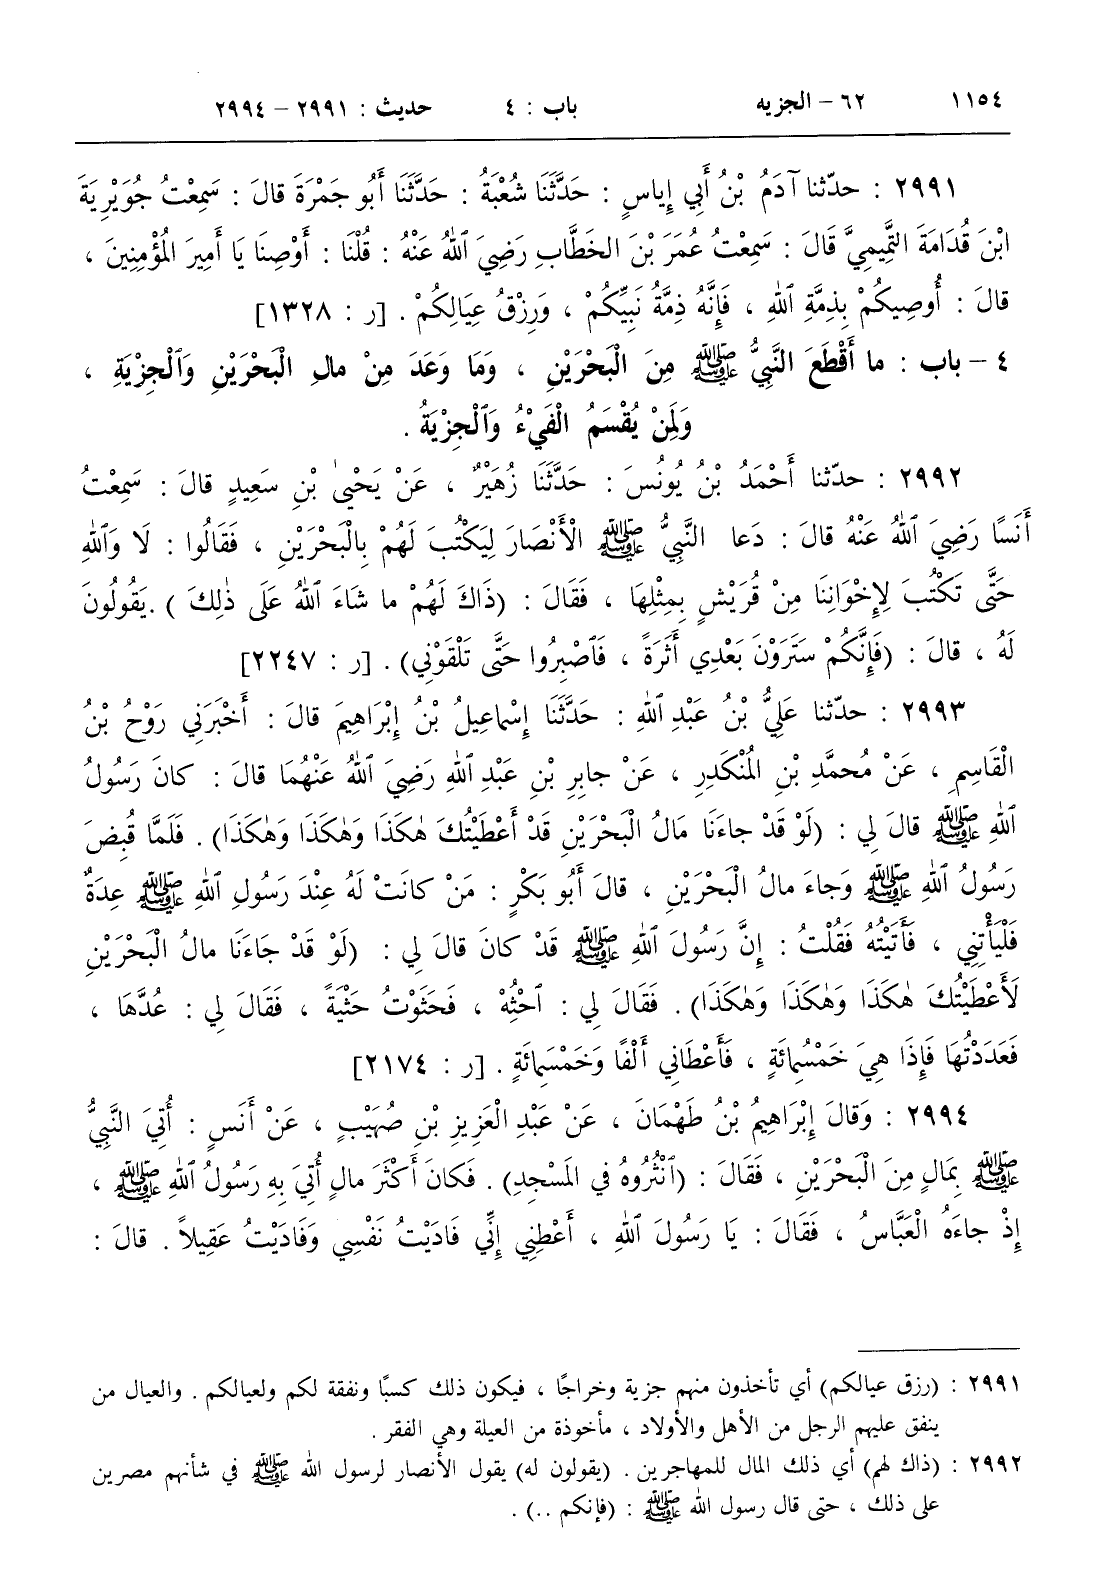 ١١٥٤ ٦٢ – الجزيه باب : ٤ حديث : ٢٩٩١ – ٢٩٩٤
٢٩٩١ : حدّثنا آدَمُ بْنُ أَبِي إِياسٍ : حَدَّثَنَا شُعْبَةُ : حَدَّثَنَا أَبُو جَمْرَةَ قالَ : سَمِعْتُ جُوَيْرِيَةَ
ابْنَ قُدَامَةَ التَّمِيمِيَّ قَالَ : سَمِعْتُ عُمَرَ بْنَ الخَطَّابِ رَضِيَ ٱللهُ عَنْهُ : قُلْنَا : أَوْصِنَا يَا أَمِيرَ المُؤْمِنِينَ ،
قالَ : أُوصِيكُمْ بِذِمَّةِ ٱللهِ ، فَإِنَّهُ ذِمَّةُ نَبِيِّكُمْ ، وَرِزْقُ عِيَالِكُمْ . [ر : ١٣٢٨]
٤ – باب : ما أَقْطَعَ النَّبِيُّ ﷺ مِنَ الْبَحْرَيْنِ ، وَمَا وَعَدَ مِنْ مالِ الْبَحْرَيْنِ وَٱلْجِزْيَةِ ،
وَلِمَنْ يُقْسَمُ الْفَيْءُ وَٱلْجِزْيَةُ .
٢٩٩٢ : حدّثنا أَحْمَدُ بْنُ يُونُسَ : حَدَّثَنَا زُهَيْرٌ ، عَنْ يَحْيىٰ بْنِ سَعِيدٍ قالَ : سَمِعْتُ
أَنَسًا رَضِيَ ٱللهُ عَنْهُ قالَ : دَعا النَّبِيُّ ﷺ الْأَنْصَارَ لِيَكْتُبَ لَهُمْ بِالْبَحْرَيْنِ ، فَقَالُوا : لَا وَٱللهِ
حَتَّى تَكْتُبَ لِإِخْوَانِنَا مِنْ قُرَيْشٍ بِمِثْلِهَا ، فَقَالَ : (ذَاكَ لَهُمْ ما شَاءَ ٱللهُ عَلَى ذٰلِكَ ) .يَقُولُونَ
لَهُ ، قالَ : (فَإِنَّكُمْ سَتَرَوْنَ بَعْدِي أَثَرَةً ، فَٱصْبِرُوا حَتَّى تَلْقَوْنِي) . [ر : ٢٢٤٧]
٢٩٩٣ : حدّثنا عَلِيُّ بْنُ عَبْدِ ٱللهِ : حَدَّثَنَا إِسْماعِيلُ بْنُ إِبْرَاهِيمَ قالَ : أَخْبَرَنِي رَوْحُ بْنُ
الْقَاسِمِ ، عَنْ مُحمَّدِ بْنِ المُنْكَدِرِ ، عَنْ جابِرِ بْنِ عَبْدِ ٱللهِ رَضِيَ ٱللهُ عَنْهُمَا قالَ : كانَ رَسُولُ
ٱللهِ ﷺ قالَ لِي : (لَوْ قَدْ جاءَنَا مَالُ الْبَحْرَيْنِ قَدْ أَعْطَيْتُكَ هٰكَذَا وَهٰكَذَا وَهٰكَذَا) . فَلَمَّا قُبِضَ
رَسُولُ ٱللهِ ﷺ وَجاءَ مالُ الْبَحْرَيْنِ ، قالَ أَبُو بَكْرٍ : مَنْ كانَتْ لَهُ عِنْدَ رَسُولِ ٱللهِ ﷺ عِدَةٌ
فَلْيَأْتِنِي ، فَأَتَيْتُهُ فَقُلْتُ : إِنَّ رَسُولَ ٱللهِ ﷺ قَدْ كانَ قالَ لِي : (لَوْ قَدْ جَاءَنَا مالُ الْبَحْرَيْنِ
لَأَعْطَيْتُكَ هٰكَذَا وَهٰكَذَا وَهٰكَذَا) . فَقَالَ لِي : ٱحْثُهْ ، فَحَثَوْتُ حَثْيَةً ، فَقَالَ لِي : عُدَّهَا ،
فَعَدَدْتُهَا فَإِذَا هِيَ خَمْسُمِائَةٍ ، فَأَعْطَانِي أَلْفًا وَخَمْسَمِائَةٍ . [ر : ٢١٧٤]
٢٩٩٤ : وَقالَ إِبْرَاهِيمُ بْنُ طَهْمَانَ ، عَنْ عَبْدِ الْعَزِيزِ بْنِ صُهَيْبٍ ، عَنْ أَنَسٍ : أُتِيَ النَّبِيُّ
ﷺ بِمَالٍ مِنَ الْبَحْرَيْنِ ، فَقَالَ : (ٱنْثُرُوهُ في المَسْجِدِ) . فَكانَ أَكْثَرَ مالٍ أُتِيَ بِهِ رَسُولُ ٱللهِ ﷺ ،
إِذْ جاءَهُ الْعَبَّاسُ ، فَقَالَ : يَا رَسُولَ ٱللهِ ، أَعْطِنِي إِنِّي فَادَيْتُ نَفْسِي وَفَادَيْتُ عَقِيلاً . قالَ :
٢٩٩١ : (رزق عيالكم) أي تأخذون منهم جزية وخراجًا ، فيكون ذلك كسبًا ونفقة لكم ولعيالكم . والعيال من
ينفق عليهم الرجل من الأهل والأولاد ، مأخوذة من العيلة وهي الفقر .
٢٩٩٢ : (ذاك لهم) أي ذلك المال للمهاجرين . (يقولون له) يقول الأنصار لرسول الله ﷺ في شأنهم مصرين
على ذلك ، حتى قال رسول الله ﷺ : (فإنكم ..) .